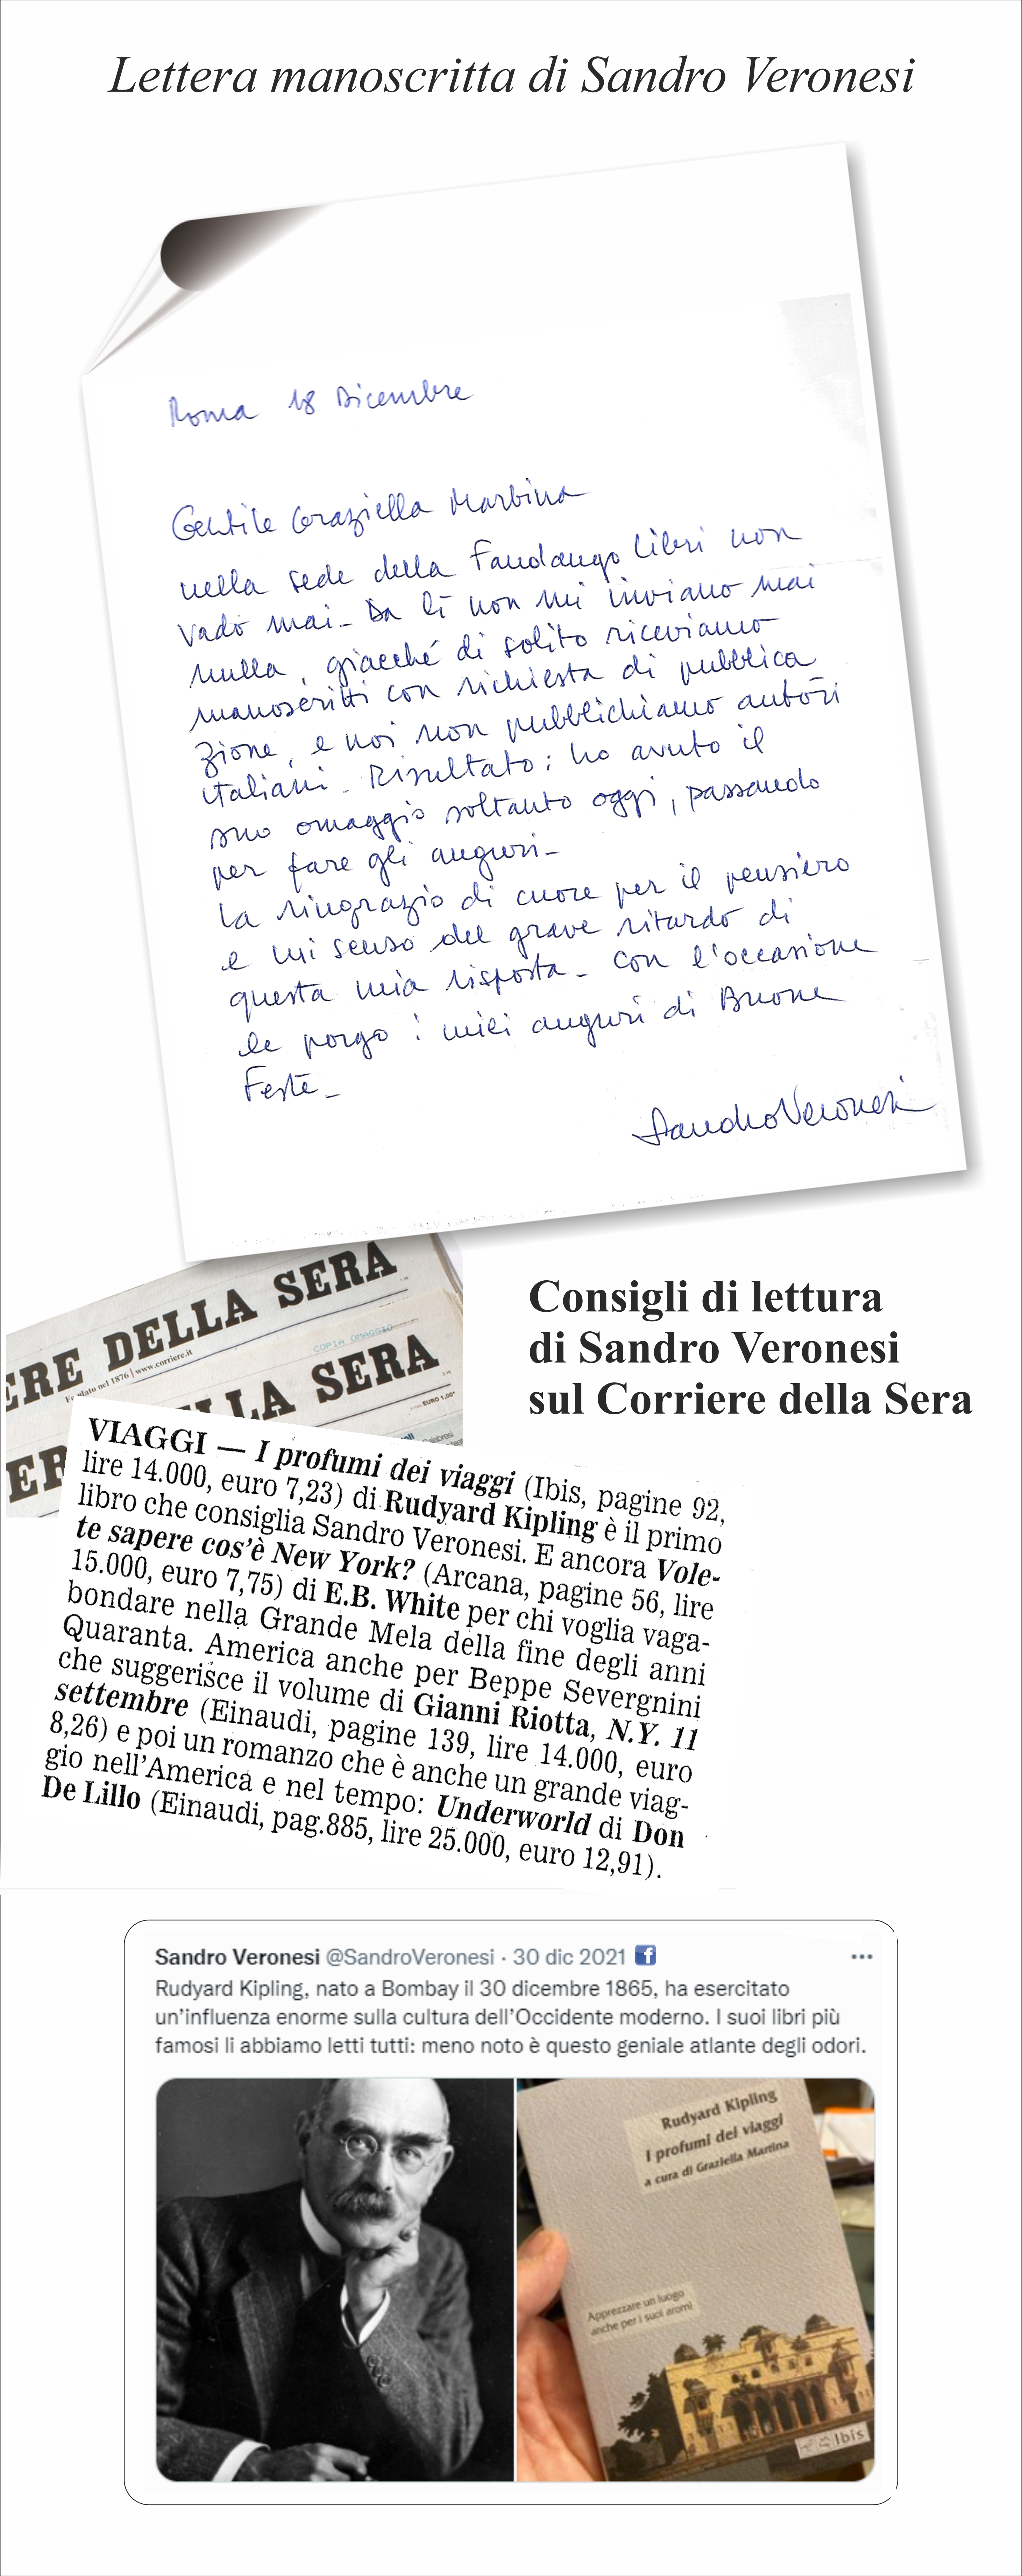 Lettera manoscritta di Sandro Veronesi
Roma 18 Dicembre
Gentile Graziella Martina
nella sede della Fandango Libri non
vado mai_ Da lì non mi inviano mai
nulla, giacché di solito riceviamo
manoscritti con richiesta di pubblica
zione, e noi non pubblichiamo autori
italiani_ Risultato: ho avuto il
suo omaggio soltanto oggi, passando
per fare gli auguri_
La ringrazio di cuore per il pensiero
e mi scuso del grave ritardo di
questa mia risposta_ Con l'occasione
le porgo i miei auguri di Buone
Feste_
Sandro Veronesi
ERE DELLA SERA
Fondato nel 1876 | www.corriere.it
COPIA OMAGGIO
LLA SERA
EURO 1,00
ER
Consigli di lettura
di Sandro Veronesi
sul Corriere della Sera
VIAGGI — I profumi dei viaggi (Ibis, pagine 92,
lire 14.000, euro 7,23) di Rudyard Kipling è il primo
libro che consiglia Sandro Veronesi. E ancora Vole-
te sapere cos'è New York? (Arcana, pagine 56, lire
15.000, euro 7,75) di E.B. White per chi voglia vaga-
bondare nella Grande Mela della fine degli anni
Quaranta. America anche per Beppe Severgnini
che suggerisce il volume di Gianni Riotta, N.Y. 11
settembre (Einaudi, pagine 139, lire 14.000, euro
8,26) e poi un romanzo che è anche un grande viag-
gio nell'America e nel tempo: Underworld di Don
De Lillo (Einaudi, pag.885, lire 25.000, euro 12,91).
Sandro Veronesi @SandroVeronesi · 30 dic 2021
Rudyard Kipling, nato a Bombay il 30 dicembre 1865, ha esercitato
un'influenza enorme sulla cultura dell'Occidente moderno. I suoi libri più
famosi li abbiamo letti tutti: meno noto è questo geniale atlante degli odori.
Rudyard Kipling
I profumi dei viaggi
a cura di Graziella Martina
Apprezzare un luogo
anche per i suoi aromi
Ibis